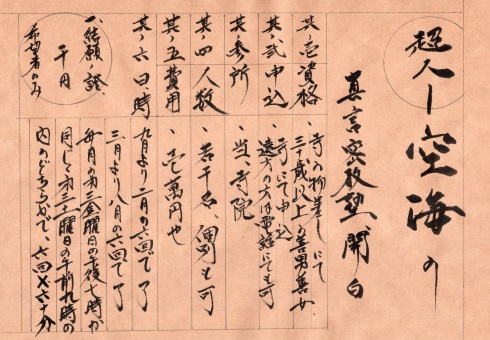 超人ー空海の
真言密教塾開白
其ノ壱資格、寺の物差しにて
三十歳以上の善男善女
其ノ弐申込、寺にて申込
遠方の方は電話にても可
其ノ参所、当寺院
其ノ四人数、若干名、個別も可
其ノ五費用、壱萬円也
其ノ六日時、九月より二月の六回で了
三月より八月の六回で了
毎月の第三金曜日の午後七時か
同じく第三土曜日の午前九時の
内のどちらかで、六回×六十分
一、結願ノ證
千円
希望者のみ